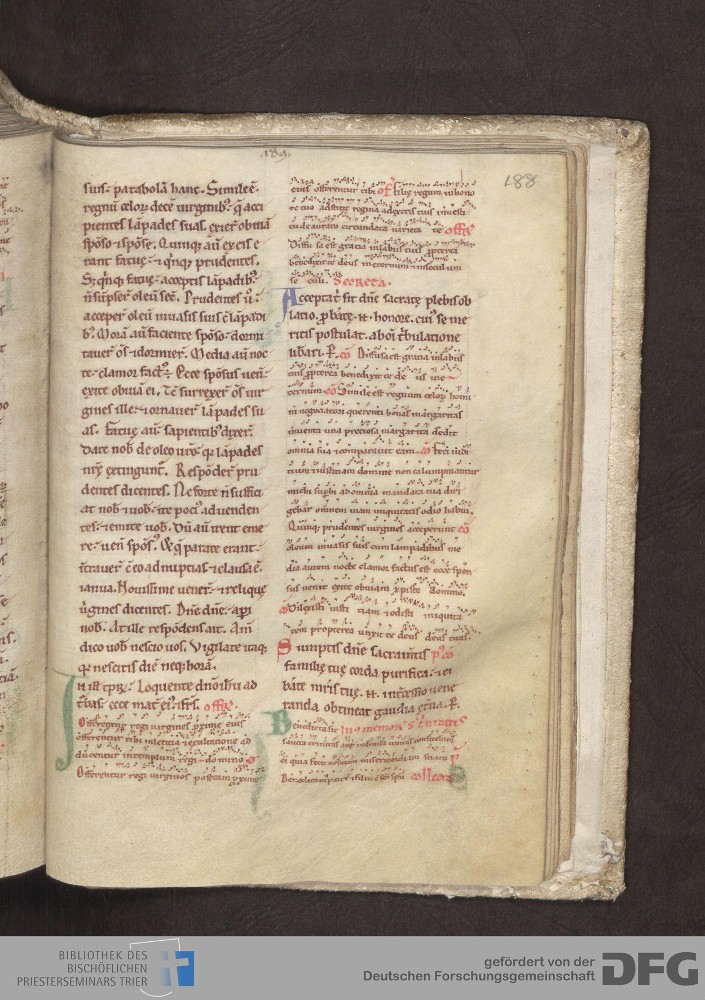 .189.
188
suis parabolā hanc. Simile ē
regnū celoꝝ decē uirginibꝰ. q̄ acci
pientes lāpades suas. exierᵗ obuiā
sposo ⁊ spōse. Quinqꝫ aū ex eis e
rant fatue. ⁊ q̄nqꝫ prudentes.
Sꝫ q̄nqꝫ fatue acceptis lāpadibꝰ.
n̄ sūpserᵗ oleū sec̄. Prudentes ū.
acceperᵗ oleū in uasis suis c̄ lāpadi
bꝰ. Morā aū faciente spōso. dormi
tauerᵗ ōs ⁊ dormierᵗ. Media aū noc
te. clamor factꝰ ē. Ecce sponsus uen̄.
exite obuiā ei. Tē surrexerᵗ ōs uir
gines ille. ⁊ ornauerᵗ lāpades su
as. Fatue aū sapientibꝰ dixerᵗ.
Date nob̄ de oleo uro. qꝛ lāpades
nrē extingunt̄. Respōderᵗ pru
dentes dicentes. Ne forte n̄ suffici
at nob̄ ⁊ uob̄. ite pociꝰ ad uenden
tes. ⁊ emite uob̄. Dū aū irent eme
re. uen̄ spōsꝰ. ⁊ q̄ parate erant.
ītrauerᵗ c̄ eo ad nuptias. ⁊ clausa ē
ianua. Nouissime uenerᵗ. ⁊ relique
ūgines dicentes. Dnē dnē. apī
nob̄. At ille respōdens ait. Am̄
dico uob̄ nescio uos. Vigilate itaqꝫ.
qꝛ nescitis diē neqꝫ horā.
In ill tp̄r. Loquente dnō ihū ad
t̄bas. ecce mat eiꝰ ⁊ fr̄s. offr̄.
Offerentᵣ regi uirgines pxime eius
offerentur tibi in leticia ⁊ exultatione ad
ducentur in templum regi domino
Offerentur regi uirgines post eam pxime
eius offerentur tibi. Of filie regum in hono
re tuo adstitit regina a dextris tuis in uesti
tu deaurato circundata uarieta te offr̄
Diffu sa est gracia in labiis tuis propterea
benedixit te deus in eternum ⁊ in seculum
se culi. Secreta.
Acceptaᵗ sit dnē sacratę plebis ob
latio. p bāte N. honore. cuiꝰ se me
ritis postulat. a boni t̄bulatione
libari. P. cō Diffusa est gracia in labiis
tuis propterea benedixit te de us in e
ternum. cō Simile est regnum celoꝝ homi
ni negociatori querenti bonas margaritas
inuenta una preciosa margarita dedit
omnia sua ⁊ comparauit eam. cō Feci iudi
cium ⁊ iusticiam domine non calumpnientur
michi supbi ad omnia mandata tua diri
gebar omnem uiam iniquitatis odio habui.
Quinqꝫ prudentes uirgines acceperunt cō
oleum in uasis suis cum lampadibus me
dia autem nocte clamor factus est ecce spon
sus uenit exite obuiam xpisto domino.
Dilexisti iusti ciam ⁊ odisti iniquita
tem propterea unxit te deus deus tuus.
Sumptis dnē sacramtis p̄ cō
familię tuę corda purifica. ⁊ ei
bāte mris tuę. N. intcessio uene
randa obtineat gaudia et̄na. P.
Benedicta sit In memor̄ s̄ t̄nitatis
sancta trinitas atqꝫ indiuisa unitas confitebimur
ei quia fecit nobiscum misericordiam suam p̄
Benedicamꝰ patrē ⁊ filiū c̄ sc̄o spū collecta
BIBLIOTHEK DES
BISCHÖFLICHEN
PRIESTERSEMINARS TRIER
gefördert von der
Deutschen Forschungsgemeinschaft
DFG